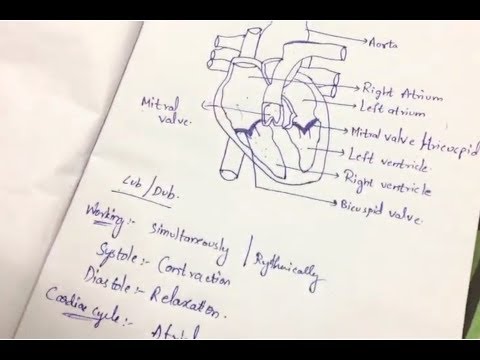 Aorta
Right Atrium
Left atrium
Mitral
valve.
Mitral valve
Left ventricle.
Right ventricle
Bicuspid valve.
Lub/Dub.
Working:- Simultaneously / Rythmically
Systole:- Contraction
Diastole:- Relaxation.
Cardiac cycle:-